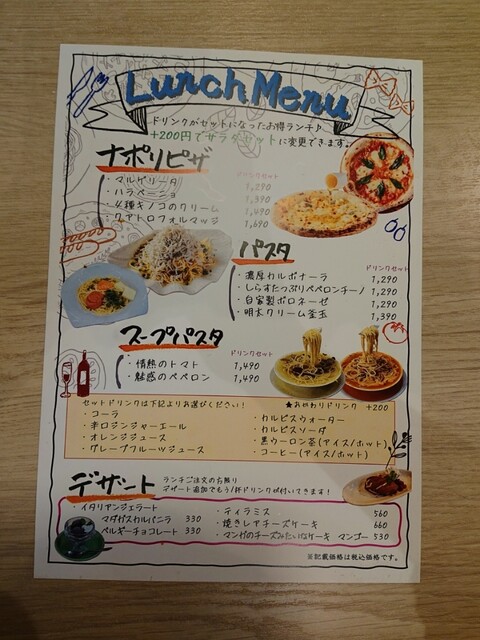 Lunch Menu
ドリンクがセットになったお得ランチ♪
+200円でサラダセットに変更できます。
ナポリピザ
ドリンクセット
・マルゲリータ 1,290
・ハラペーニョ 1,390
・4種キノコのクリーム 1,490
・クアトロフォルマッジ 1,690
パスタ
ドリンクセット
・濃厚カルボナーラ 1,290
・しらすたっぷりペペロンチーノ 1,290
・自家製ボロネーゼ 1,290
・明太クリーム釜玉 1,390
スープパスタ
ドリンクセット
・情熱のトマト 1,490
・魅惑のペペロン 1,490
セットドリンクは下記よりお選びください!
★おかわりドリンク +200
・コーラ
・辛口ジンジャーエール
・オレンジジュース
・グレープフルーツジュース
・カルピスウォーター
・カルピスソーダ
・黒ウーロン茶(アイス/ホット)
・コーヒー(アイス/ホット)
デザート
ランチご注文のお客り
デザート追加でもう1杯ドリンクが付いてきます!
・イタリアンジェラート
マダガスカルバニラ 330
ベルギーチョコレート 330
・ティラミス 560
・焼きレアチーズケーキ 660
・マンガのチーズみたいなケーキ マンゴー 530
※記載価格は税込価格です。